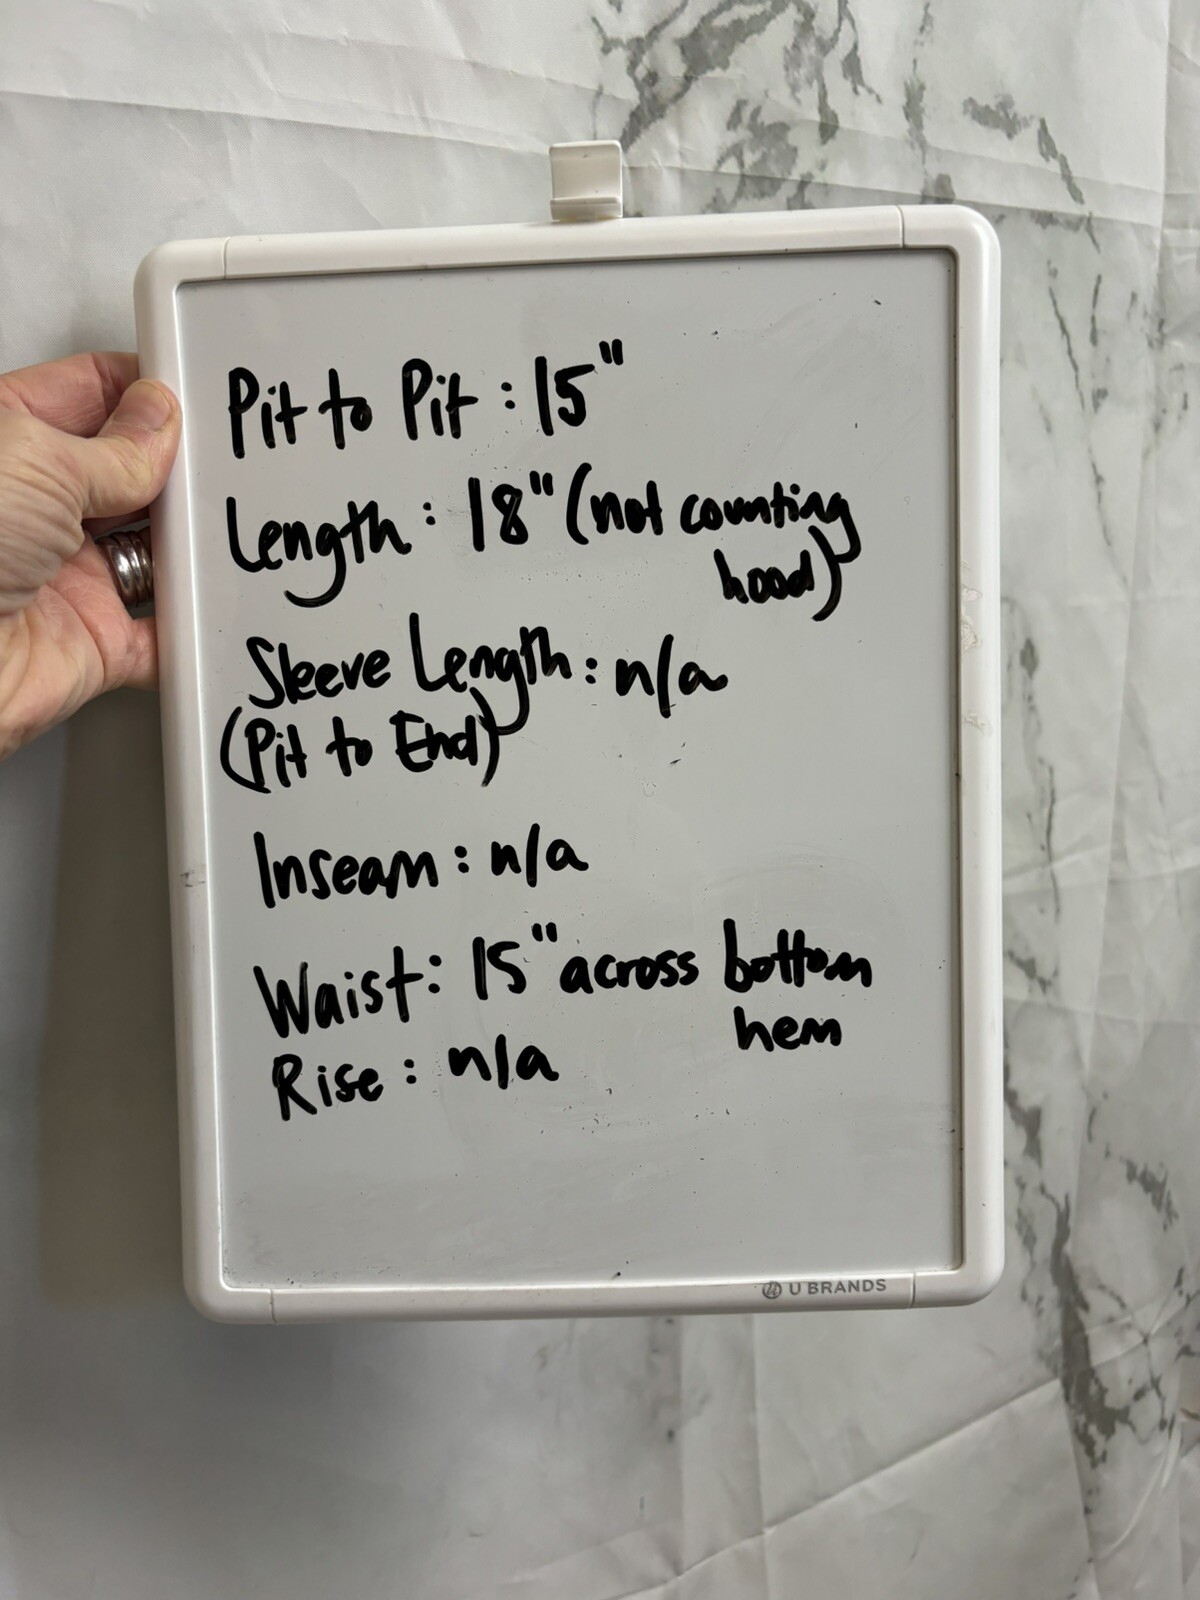 Pit to Pit : 15"
Length : 18" (not counting
hood)
Sleeve Length : n/a
(Pit to End)
Inseam : n/a
Waist : 15" across bottom
hem
Rise : n/a
U BRANDS